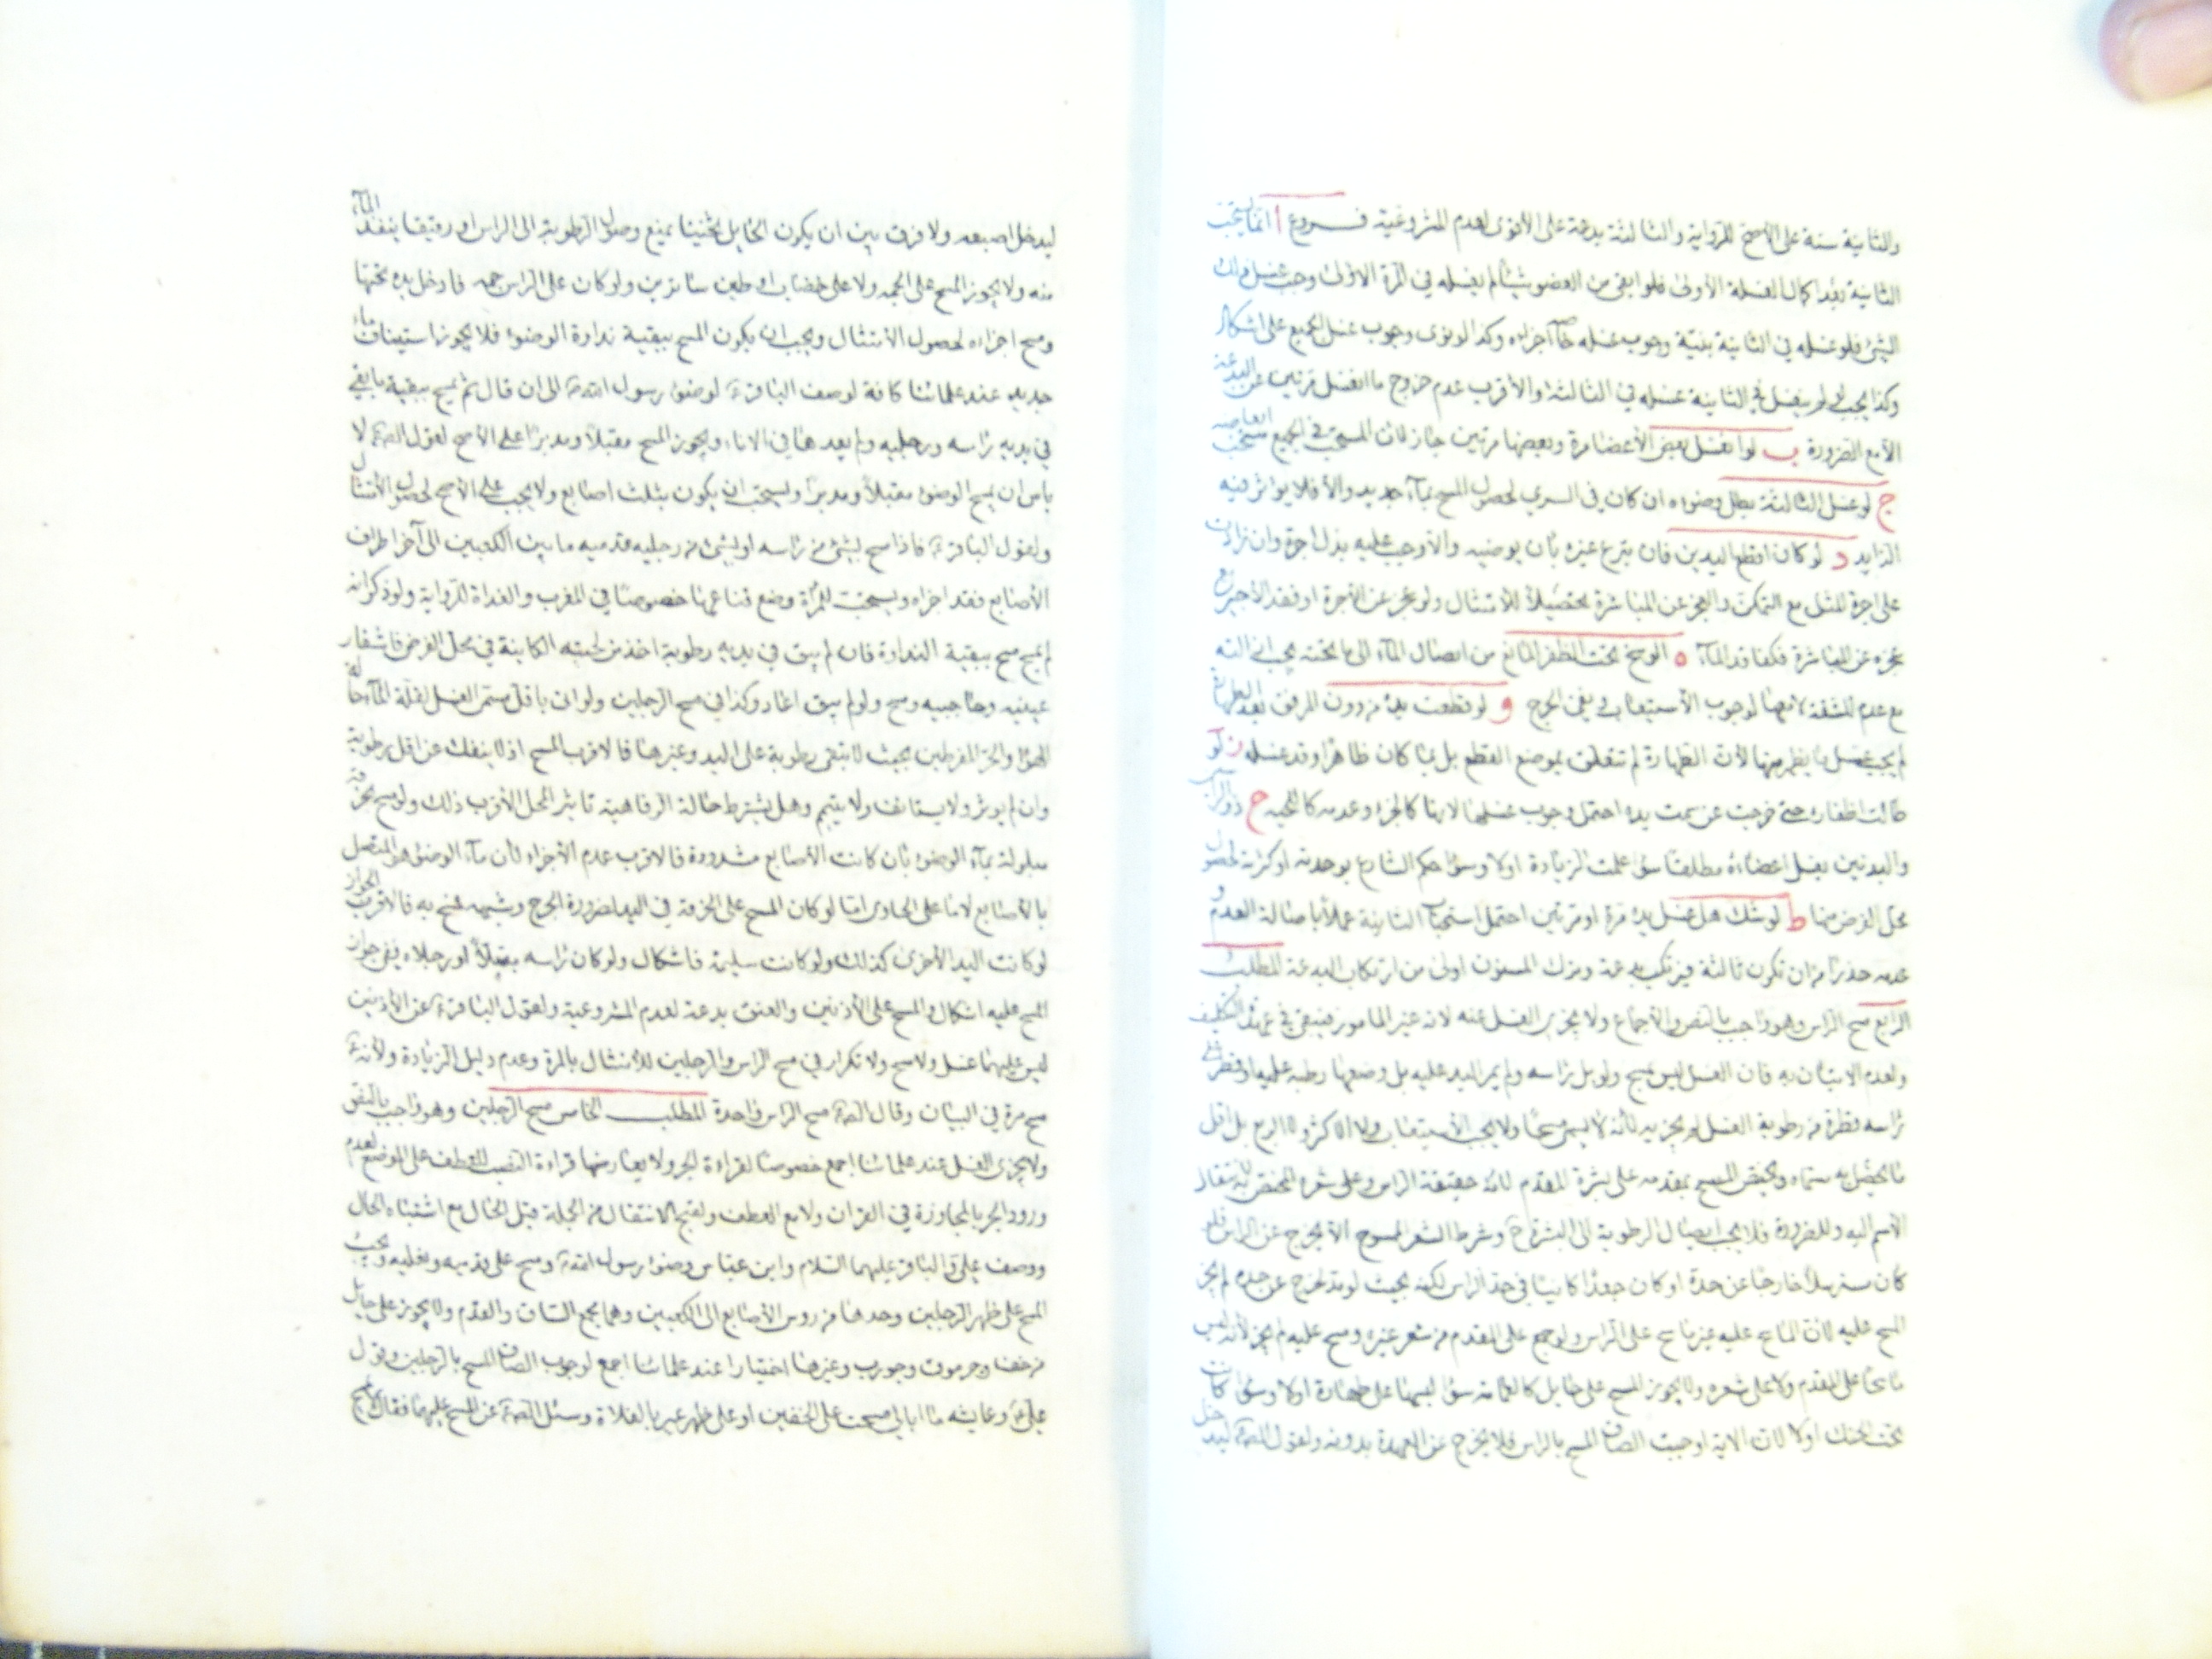 والثانية سنة على الأصح للرواية والثالثة بدعة على الأقوى لعدم المشروعية فروع ا انما يستحب
الثانية بعد اكمال الغسلة الأولى فلو ابقى من العضو شيئا لم يغسله في المرة الاولى وجب غسل ذلك
الشئ فلو غسله في الثانية بنية وجوب غسله خاصة اجزاه وكذا لو نوى وجوب غسل الجميع على اشكال
وكذا يجب لو لم يغسل في الثانية غسله في الثالثة والأقرب عدم خروج ما انغسل مرتين عن البدعة
الا مع الضرورة ب لو انغسل بعض الأعضا مرة وبعضها مرتين جاز لان المستحق في الجميع مستحب
ج لو غسل الثالثة بطل وضوءه ان كان في اليسرى لحصول المسح بماء جديد والا فلا يؤثر فيه
الزايد د لو كان اقطع اليدين فان تبرع غيره بان يوضيه والا وجب عليه بذل اجرة وان زادت
على اجرة المثل مع التمكن والعجز عن المباشرة تحصيلا للامتثال ولو عجز عن الأجرة او فقد الأجير مع
عجزه عن المباشرة فكفاقد الماء ه الوسخ تحت الظفر المانع من ايصال الماء الى ما تحته يجب ازالته
مع عدم المشقة لا معها لوجوب الأستيعاب ونفى الحرج و لو قطعت يده من دون المرفق بعد الطهارة
لم يجب غسل ما يظهر منها لان الطهارة لم تتعلق بموضع القطع بل بما كان ظاهرا وقد غسله ز لو
طالت اظفاره حتى خرجت عن سمت يده احتمل وجوب غسلها لانها كالجزء وعدمه كاللحية ح ذو الراسين
والبدنين يغسل اعضاءه مطلقا سواء علمت الزيادة اولا وسواء حكم الشارع بوحدته او كثرته لحصول
محل الفرض منها ط لو شك هل غسل يده مرة او مرتين احتمل استحباب الثانية عملا باصالة العدم و
عدمه حذرا من ان تكون ثالثة فيرتكب بدعة وترك المسنون اولى من ارتكاب البدعة المطلب
الرابع مسح الراس وهو واجب بالنص والأجماع ولا يجزى الغسل عنه لانه غير المامور فيبقى في عهدة التكليف
ولعدم الاتيان به فان الغسل ليس بمسح ولو بل راسه ولم يمر اليد عليه بل وضعها رطبة عليه او قطر على
راسه قطرة من رطوبة الغسل لم يجزيه لأنه لا يسمى مسحا ولا يجب الأستيعاب ولا الاكثر ولا الربع بل اقل
ما يحصل به سماه ويختص المسح بمقدمه على بشرة المقدم لانه حقيقة الراس وعلى شعره المختص به لانتقال
الأسم اليه وللضرورة فلا يجب ايصال الرطوبة الى البشرة ح وشرط الشعر الممسوح الا يخرج عن الراس فلو
كان مسترسلا خارجا عن حده او كان جعدا كاينا في حد الراس لكنه بحيث لو مد لخرج عن حده لم يجز
المسح عليه لان الماسح عليه غير ماسح على الراس ولو جمع على المقدم من شعر غيره ومسح عليه لم يجز لأنه ليس
ماسحا على المقدم ولا على شعره ولا يجوز المسح على حايل كالعمامة سواء لبسها على طهارة اولا وسواء كانت
تحت الحنك اولا لان الاية اوجبت الصاق المسح بالراس فلا يخرج عن العهدة بدونه ولقول الص ليدخل
ليدخل اصبعه ولا فرق بين ان يكون الحايل ثخينا يمنع وصول الرطوبة الى الراس او رقيقا ينفذ الماء
منه ولا يجوز المسح على الجمة ولا على خضاب او طين ساترين ولو كان على الراس جمة فادخل يده تحتها
ومسح اجزاءه لحصول الأمتثال ويجب ان يكون المسح ببقية نداوة الوضوء فلا يجوز استيناف ماء
جديد عند علمائنا كافة لوصف الباقر ع لوضوء رسول الله ص الى ان قال ثم مسح ببقية ما بقى
في يديه راسه ورجليه ولم يعدهما في الاناء ويجوز المسح مقبلا ومدبرا على الأصح لقول الص ع لا
باس ان يمسح الوضوء مقبلا ومدبرا ويستحب ان يكون بثلث اصابع ولا يجب على الأصح لحصول الأمتثال
ولقول الباقر ع فاذا مسح بشئ من راسه او بشئ من رجليه قدميه ما بين الكعبين الى آخر اطراف
الأصابع فقد اجزاه ويستحب للمرأة وضع قناعها خصوصا في المغرب والغداة للرواية ولو ذكر انه
لم يمسح مسح ببقية النداوة فان لم يبق في يديه رطوبة اخذ من لحيته الكاينة في محل الفرض واشفار
عينيه وحاجبيه ومسح ولو لم يبق اعاد وكذا في مسح الرجلين ولو اتى باقل مسمى الغسل لقلة الماء حالة
الهواء والحر المفرطين بحيث لا تبقى رطوبة على اليد وغيرها فالاقرب المسح اذ لا ينفك عن اقل رطوبة
وان لم يوثر ولا يستانف ولا يتيمم وهل يشترط حالة الرفاهية تاثر المحل الأقرب ذلك ولو مسح بخرقة
مبلولة بماء الوضوء بان كانت الأصابع مشدودة فالاقرب عدم الأجزاء لأن ماء الوضوء هو المتصل
بالأصابع لا ما على الحاوى اما لو كان المسح على الخرقة في اليد لضرورة الجرح وشبهه فمسح به فالاقرب الجواز
لو كانت اليد الأخرى كذلك ولو كانت سليمة فاشكال ولو كان راسه مغسلا او رجلاه ففى جواز
المسح عليه اشكال والمسح على الأذنين والعنق بدعة لعدم المشروعية ولقول الباقر ع عن الأذنين
ليس عليهما غسل ولا مسح ولا تكرار في مسح الراس والرجلين للأمتثال بالمرة وعدم دليل الزيادة ولأنه ع
مسح مرة في البيان وقال الص ع مسح الراس واحدة المطلب الخامس مسح الرجلين وهو واجب بالنص
ولا يجزى الغسل عند علمائنا اجمع خصوصا لقراءة الجر ولا يعارضها قراءة النصب للعطف على الموضع لعدم
ورود الجر بالمجاورة في القران ولا مع العطف ولقبح الانتقال من الجملة قبل الكمال مع اشتباه الحال
ووصف على والباقر عليهما السلام وابن عباس وضوء رسول الله ص ومسح على قدميه ونعليه ويجب
المسح على ظهر الرجلين وحدهما من روس الأصابع الى الكعبين وهما مجمع الساق والقدم ولا يجوز على حايل
من خف وجرموق وجورب وغيرها اختيارا عند علمائنا اجمع لوجوب الصاق المسح بالرجلين وقول
على ع وعايشه ما ابالي مسحت على الخفين او على ظهر عير بالفلاة وسئل الص ع عن المسح عليهما فقال لا تمسح